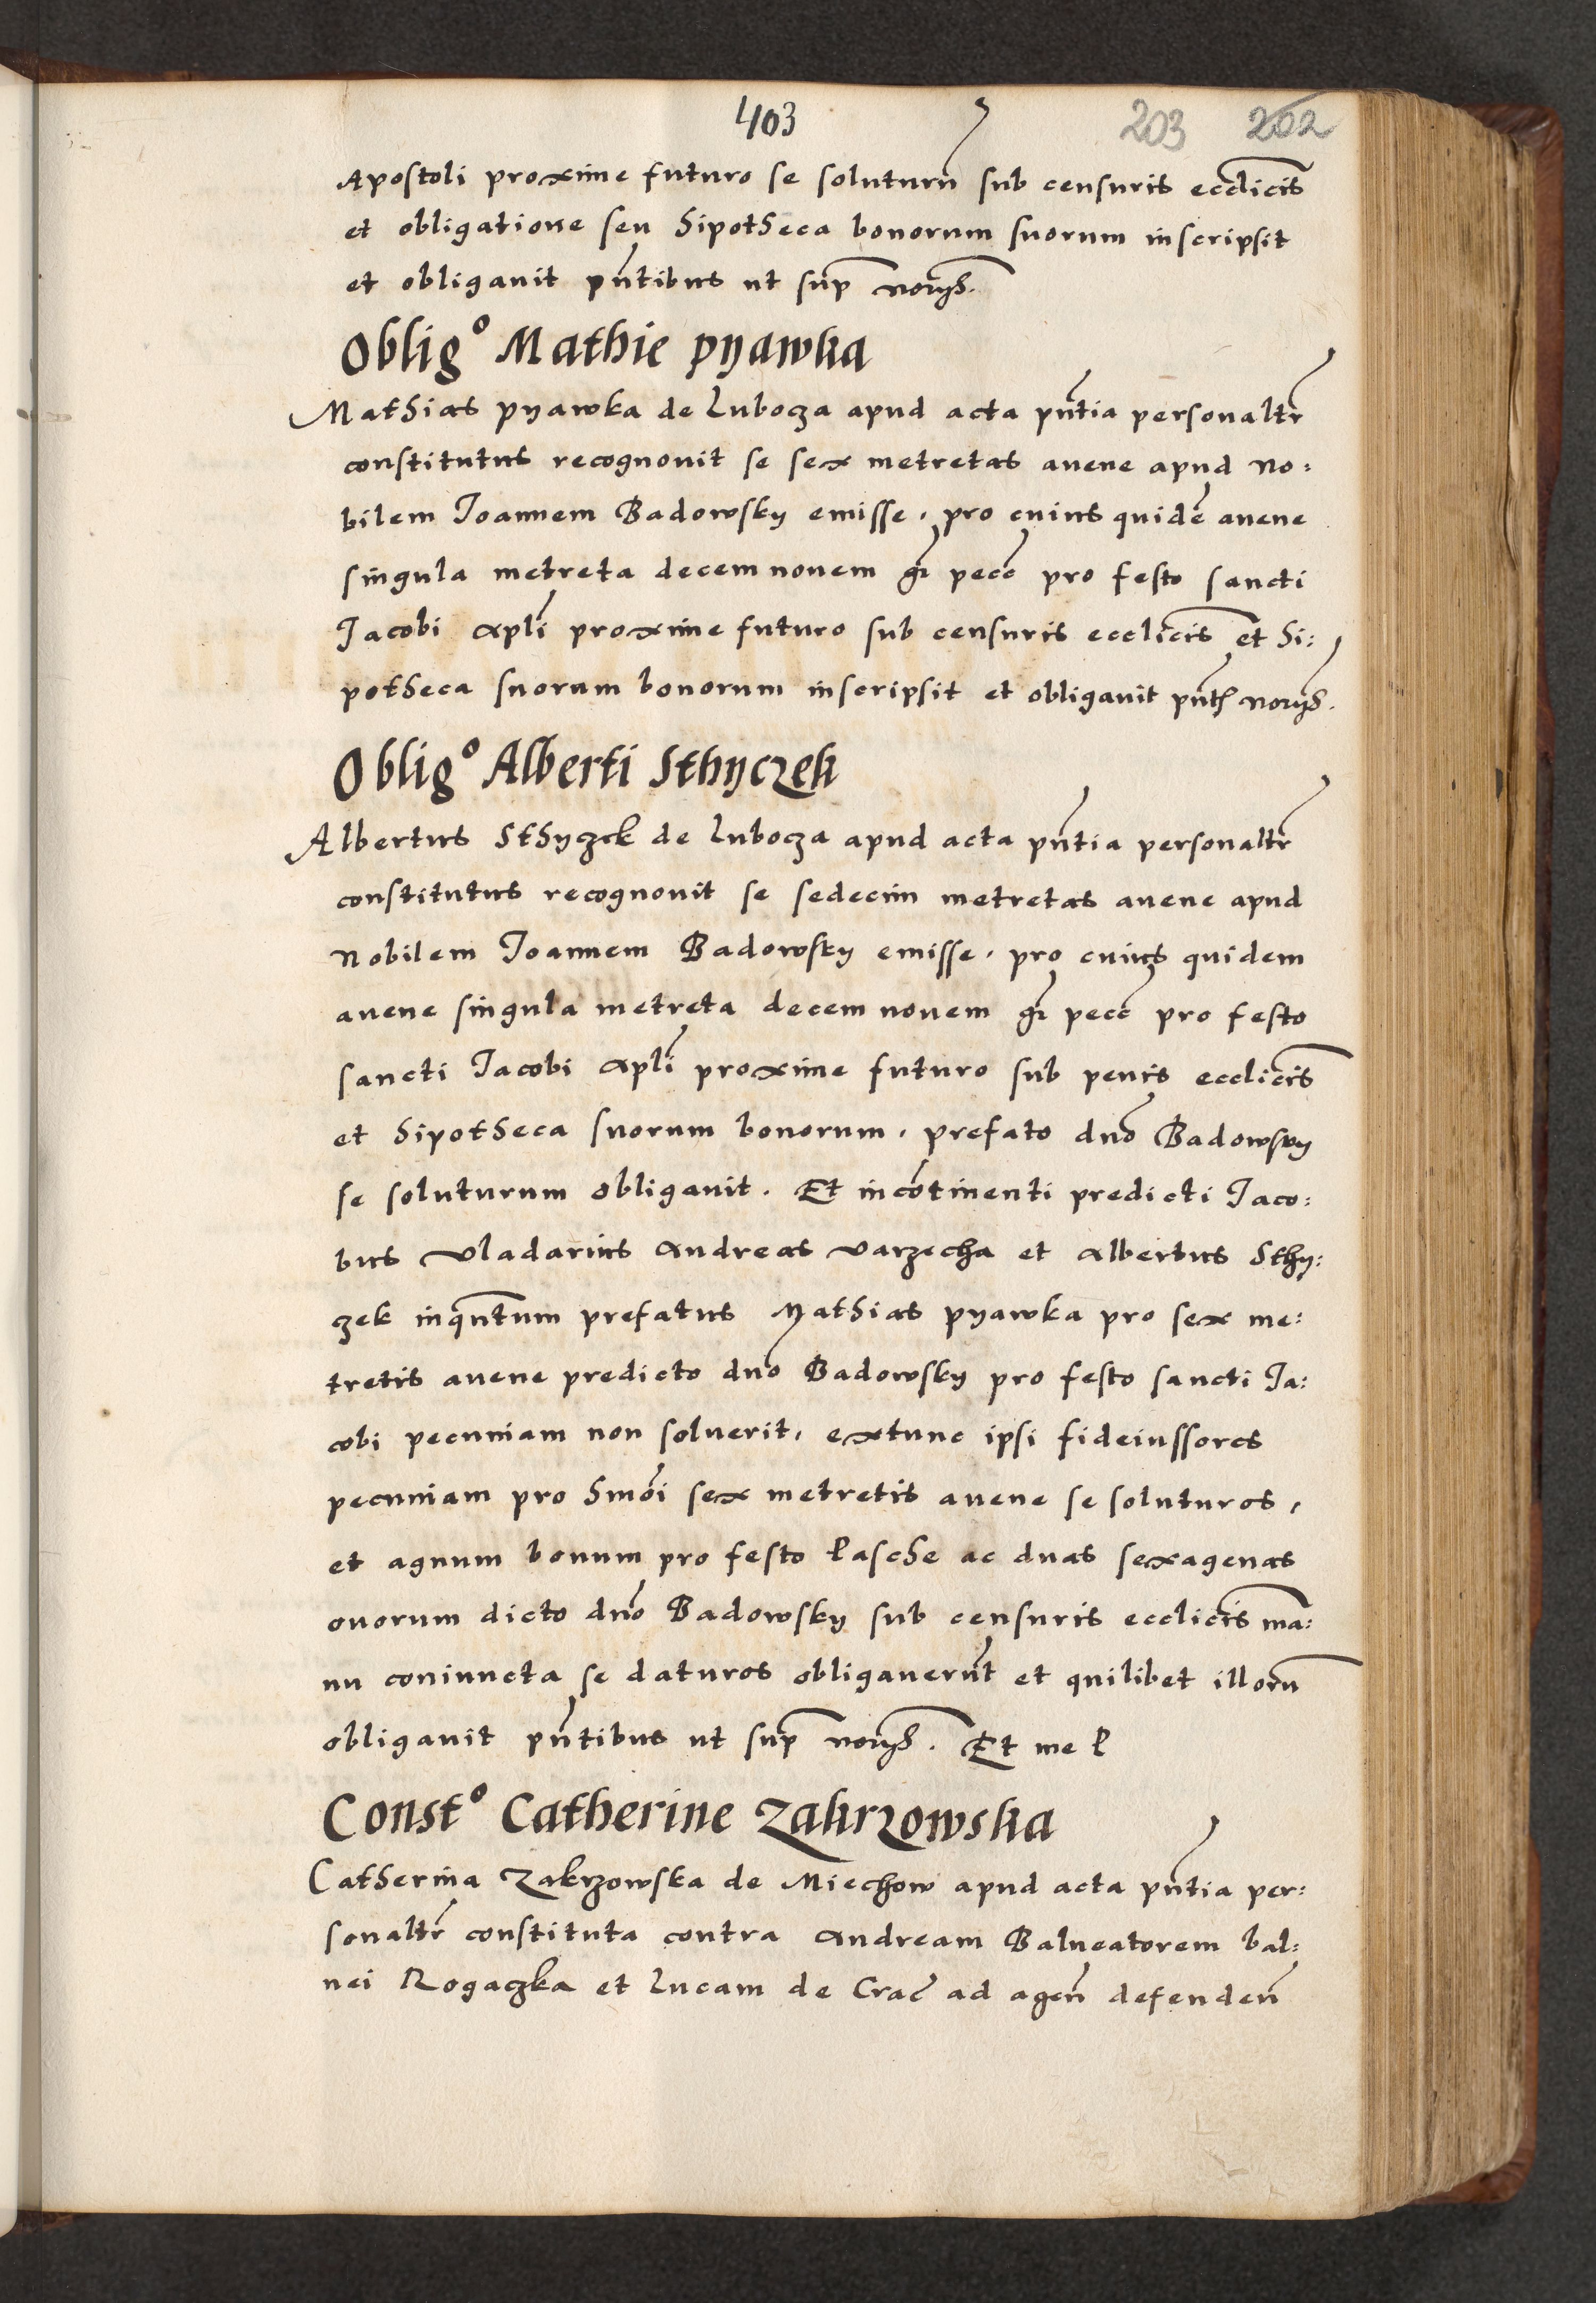 403 203 202
Apostoli proxime futuro se soluturu̅ sub censuris eccl̅icis
et obligatione seu hipotheca bonorum suorum inscripsit
et obligavit pn̅tibus ut sup̅ norijs.
Oblig° Mathie pyawka
Mathias pyawka de Luboc̨za apud acta pn̅tia personaltr̅
constitutus recognovit se sex metretas avene apud No:
bilem Joannem Badowsky emisse, pro cuius quide̅ avene
singula metreta decem novem gr̅ pecc̅ pro festo sancti
Jacobi Apl̅i proxime futuro sub censuris eccl̅icis et hi:
potheca suorum bonorum inscripsit et obligavit pn̅t norijs.
Oblig° Alberti Sthyczek
Albertus Sthyczek de Lubocza apud acta pn̅tia personaltr̅
constitutus recognovit se sedecim metretas avene apud
Nobilem Joannem Badowsky emisse, pro cuius quidem
avene singula metreta decem novem gr̅ pecc̅ pro festo
sancti Jacobi Apl̅i proxime futuro sub penis eccl̅icis
et hipotheca suorum bonorum, prefato dn̅o Badowsky
se soluturum obligavit. Et inco̅tinenti predicti Jaco:
bus Vladarius Andreas Varzecha et Albertus Sthy:
czek inqn̅tum prefatus Mathias pyawka pro sex me:
tretis avene predicto dn̅o Badowsky pro festo sancti Ja:
cobi pecuniam non solverit, extunc ipsi fideiussores
pecuniam pro hmo̅i sex metretis avene se soluturos,
et agnum bonum pro festo Pasche ac duas sexagenas
ovorum dicto dn̅o Badowsky sub censuris eccl̅icis ma:
nu coniuncta se daturos obligaveru̅t et quilibet illoru̅
obligavit pn̅tibus ut sup̅ norijs. Et me P
Const° Catherine Zakrzowska
Catherina Zakrzowska de Miechow apud acta pn̅tia per:
sonaltr̅ constituta contra Andream Balneatorem bal:
nei Rogaczka et Lucam de Crac̅ ad agen̅ defenden̅